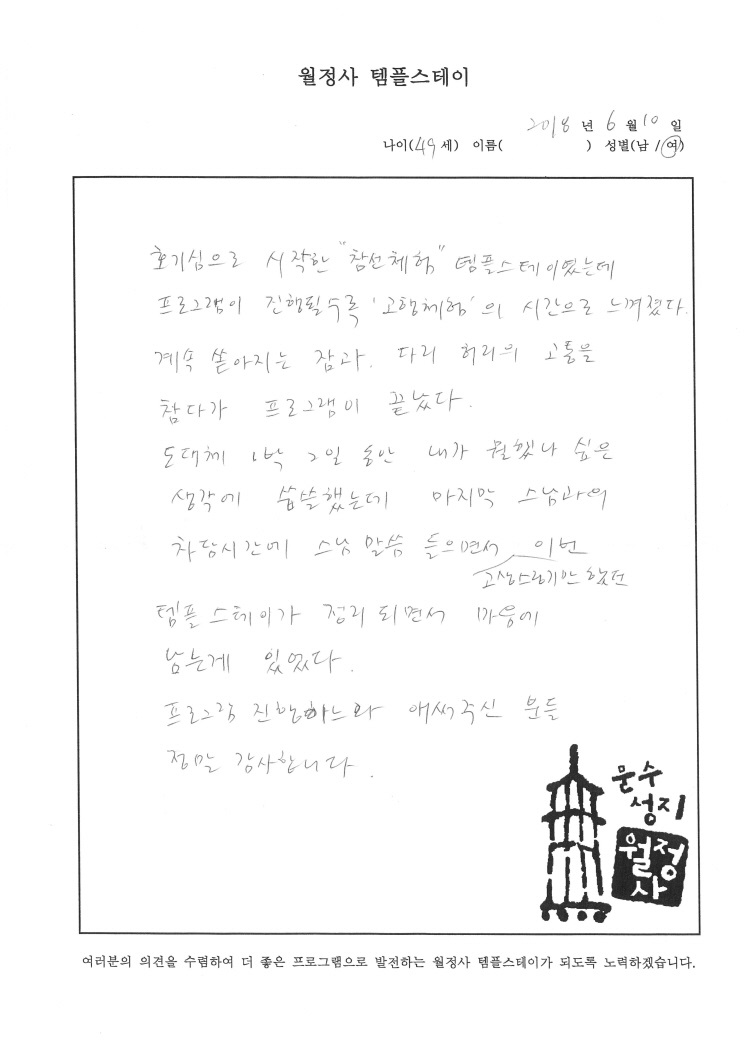 월정사 템플스테이
2018 년 6 월 10 일
나이(49 세) 이름( ) 성별(남 / 여)
호기심으로 시작한 "참선체험" 템플스테이였는데
프로그램이 진행될수록 '고행체험'의 시간으로 느껴졌다.
계속 쏟아지는 잠과, 다리 허리의 고통을
참다가 프로그램이 끝났다.
도대체 1박 2일 동안 내가 뭘했나 싶은
생각에 씁쓸했는데 마지막 스님과의
차담시간에 스님 말씀 들으면서 이번
고생스럽기만 했던
템플스테이가 정리되면서 마음에
남는게 있었다.
프로그램 진행하느라 애써주신 분들
정말 감사합니다.
문수
성지
월정
사
여러분의 의견을 수렴하여 더 좋은 프로그램으로 발전하는 월정사 템플스테이가 되도록 노력하겠습니다.